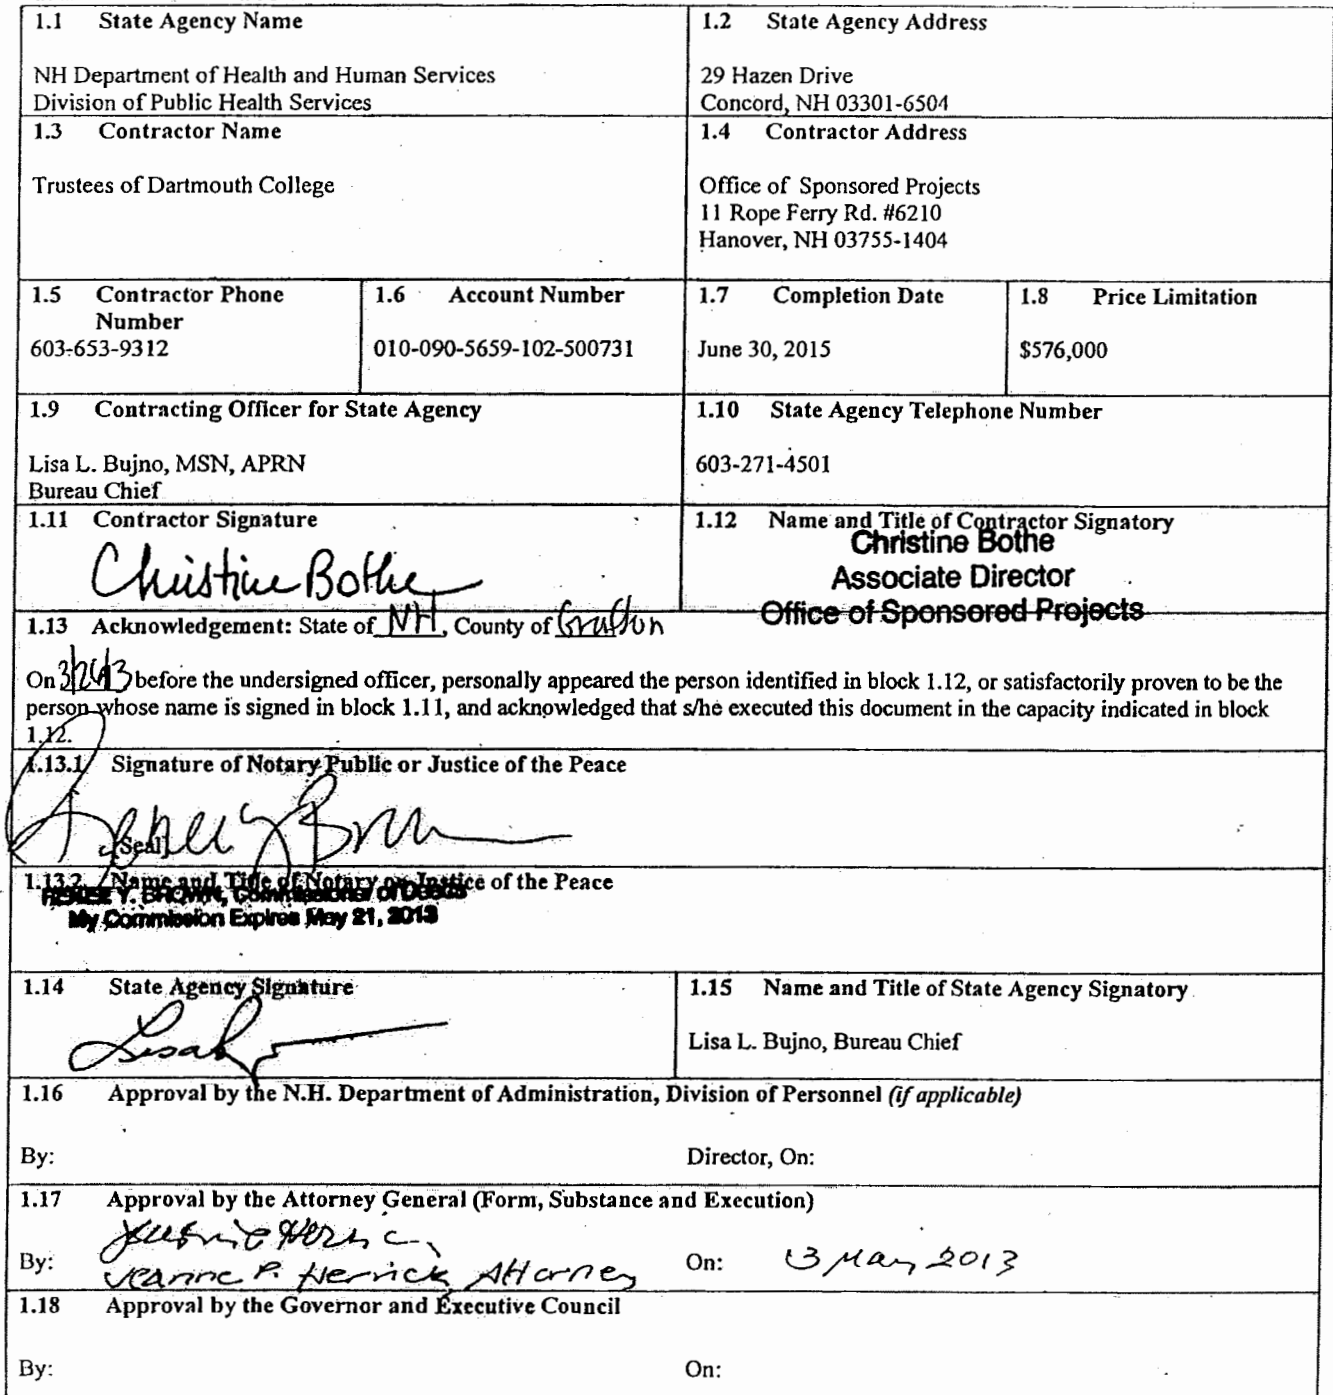 1.1 State Agency Name
NH Department of Health and Human Services
Division of Public Health Services
1.2 State Agency Address
29 Hazen Drive
Concord, NH 03301-6504
1.3 Contractor Name
Trustees of Dartmouth College
1.4 Contractor Address
Office of Sponsored Projects
11 Rope Ferry Rd. #6210
Hanover, NH 03755-1404
1.5 Contractor Phone
Number
603-653-9312
1.6 Account Number
010-090-5659-102-500731
1.7 Completion Date
June 30, 2015
1.8 Price Limitation
$576,000
1.9 Contracting Officer for State Agency
Lisa L. Bujno, MSN, APRN
Bureau Chief
1.10 State Agency Telephone Number
603-271-4501
1.11 Contractor Signature
Christine Bothe
1.12 Name and Title of Contractor Signatory
Christine Bothe
Associate Director
Office of Sponsored Projects
1.13 Acknowledgement: State of NH, County of Grafton
On before the undersigned officer, personally appeared the person identified in block 1.12, or satisfactorily proven to be the
person whose name is signed in block 1.11, and acknowledged that s/he executed this document in the capacity indicated in block
1.12.
1.13.1 Signature of Notary Public or Justice of the Peace
[Seal]
1.13.2 Name and Title of Notary or Justice of the Peace
RENEE Y. BROWN, Commissioner of Deeds
My Commission Expires May 21, 2013
1.14 State Agency Signature
1.15 Name and Title of State Agency Signatory
Lisa L. Bujno, Bureau Chief
1.16 Approval by the N.H. Department of Administration, Division of Personnel (if applicable)
By: Director, On:
1.17 Approval by the Attorney General (Form, Substance and Execution)
By: Jeanne P. Herrick, Attorney On: 13 May 2013
1.18 Approval by the Governor and Executive Council
By: On: